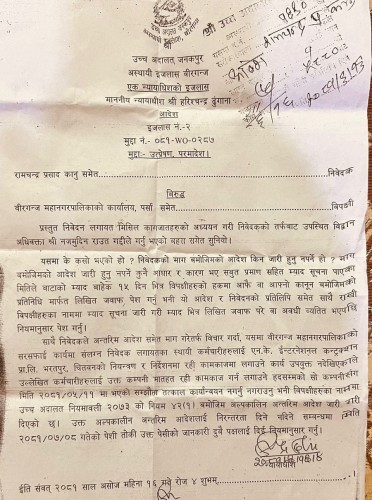 श्री उच्च अदा
उच्च अदालत जनकपुर
अस्थायी इजलास वीरगन्ज
एक न्यायाधिशको इजलास
माननीय न्यायाधीश श्री हरिश्चन्द्र ढुंगाना
आदेश
इजलास नं.-२
मुद्दा नं.- ०८१-WO-०२८७
मुद्दाः- उत्प्रेषण, परमादेश।
रामचन्द्र प्रसाद कानु समेत......निवेदक
विरुद्ध
वीरगन्ज महानगरपालिकाको कार्यालय, पर्सा समेत......विपक्षी
प्रस्तुत निवेदन लगायत मिसिल कागजातहरुको अध्ययन गरी निवेदकको तर्फबाट उपस्थित विद्वान
अधिवक्ता श्री नजमुद्दिन राउत गद्दीले गर्नु भएको बहस समेत सुनियो।
यसमा के कसो भएको हो ? निवेदकको माग बमोजिमको आदेश किन जारी हुनु नपर्ने हो ? माग
बमोजिमको आदेश जारी हुनु नपर्ने कुनै आधार र कारण भए सबुत प्रमाण सहित म्याद सूचना पाएका
मितिले बाटोको म्याद बाहेक १५ दिन भित्र विपक्षीहरुको हकमा आफै वा आफ्नो कानून बमोजिमको
प्रतिनिधि मार्फत लिखित जवाफ पेश गर्नु भनी यो आदेश र निवेदनको प्रतिलिपि समेत साथै राखी
विपक्षीहरुका नाममा म्याद सूचना जारी गरी म्याद भित्र लिखित जवाफ परे वा अवधी व्यतित भएपछि
नियमानुसार पेश गर्नु।
साथै निवेदकले अन्तरिम आदेश समेत माग गरेतर्फ विचार गर्दा, यसमा वीरगन्ज महानगरपालिकाको
सरसफाई कार्यमा संलग्न निवेदक लगायतका स्थायी कर्मचारीहरुलाई एन.के. ईन्टरनेशनल कन्ट्रक्शन
प्रा.लि. भरतपुर, चितवनको नियन्त्रण र निर्देशनमा रही कामकाजमा लगाउने कार्य उपयुक्त नदेखिएकाले
उल्लेखित कर्मचारीहरुलाई उक्त कम्पनी मातहत रही कामकाज गर्न लगाउने हदसम्मको सो कम्पनीसँग
मिति २०८१/०५/११ मा भएको सम्झौता तत्काल कार्यान्वयन नगर्नु नगराउनु भनी विपक्षीहरुका नाममा
उच्च अदालत नियमावली २०७३ को नियम ४२(१) बमोजिम अल्पकालिन अन्तरिम आदेश जारी
दिएको छ। उक्त अल्पकालीन अन्तरिम आदेशलाई निरन्तरता दिने नदिने सम्बन्धमा मिति
२०८१/०७/०८ गतेको पेशी तोकी उक्त पेशीको जानकारी दुबै पक्षलाई दिई नियमानुसार गर्नु।
न्यायाधीश
ईति सवत् २०८१ साल असोज महिना १६ गते रोज ४ शुभम्